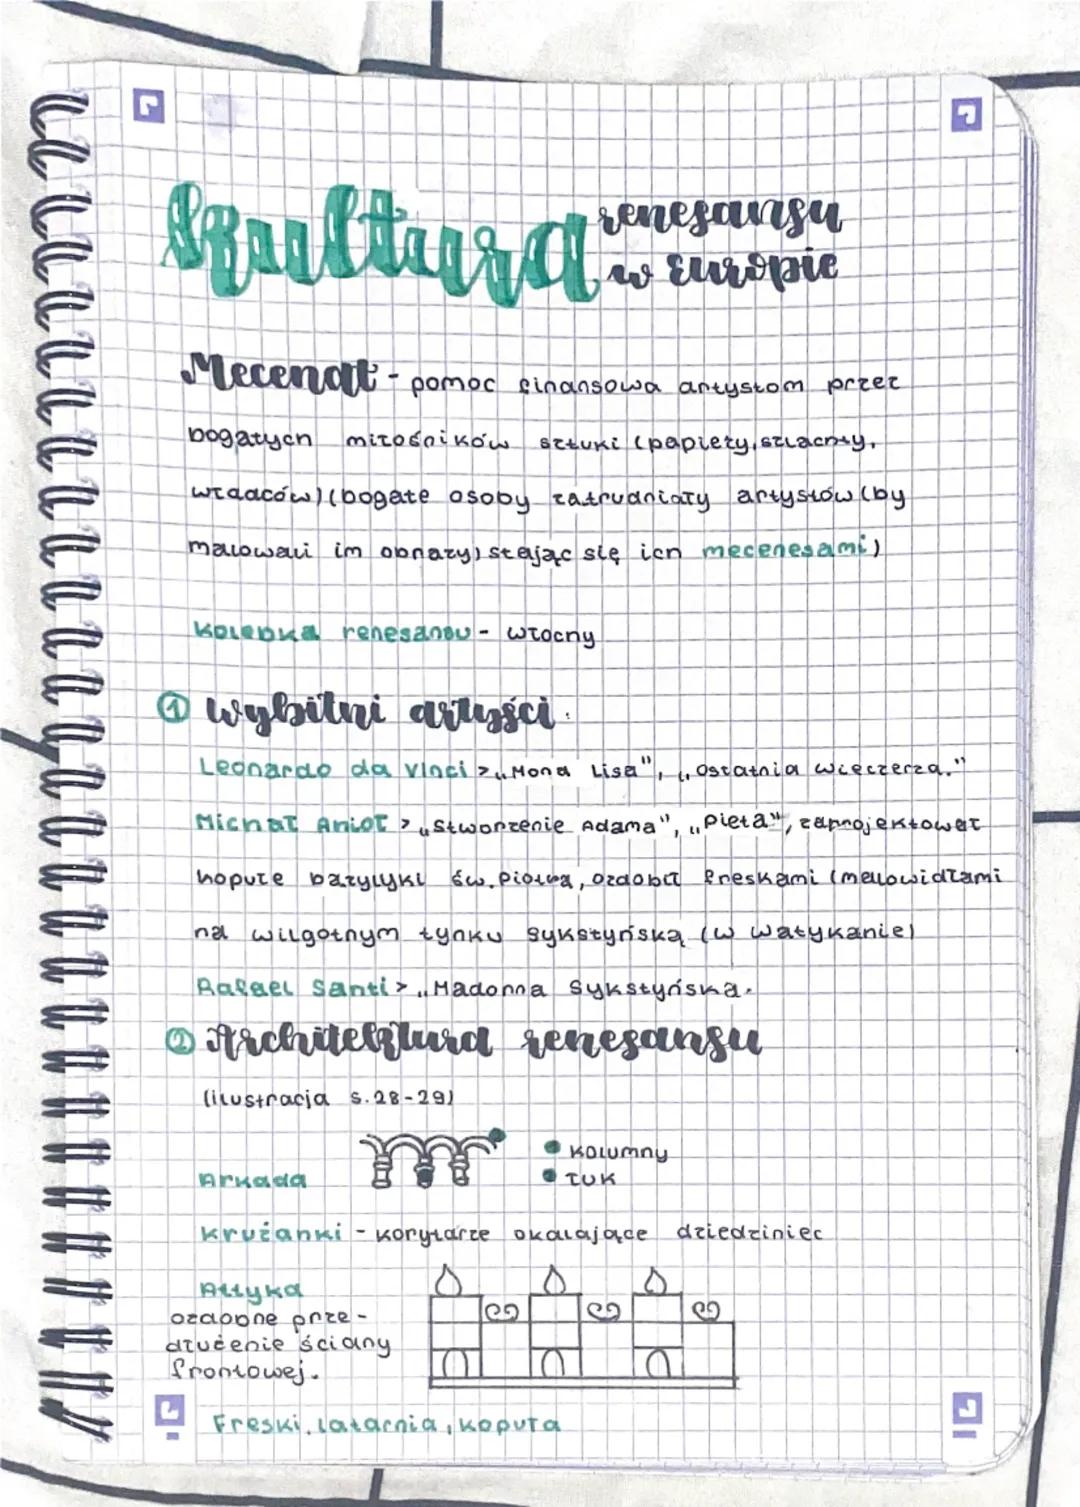 kultura renesansu
w Europie
Mecenat - pomoc finansowa artystom przez
bogatych miłośników sztuki (papieży, szlachty,
władców) (bogate osoby zatrudniały artystów (by
malowali im obrazy) stając się ich mecenesami)
Kolebka renesansu - Włochy
① Wybitni artyści
Leonardo da Vinci > „Mona Lisa", „Ostatnia wieczerza."
Michał Anioł > „Stworzenie Adama", „Pieta", zaprojektował
kopułe bazylyki św. Piotra, ozdobił freskami (malowidłami
na wilgotnym tynku Sykstyńską (w Watykanie)
Rafael Santi > „Madonna Sykstyńska.
② Architektura renesansu
(ilustracja s.28-29)
Arkada
kolumny
łuk
Krużanki - korytarze okalające dziedziniec
Attyka
ozdobne prze-
dłużenie ściany
frontowej.
Freski, latarnia, kopuła